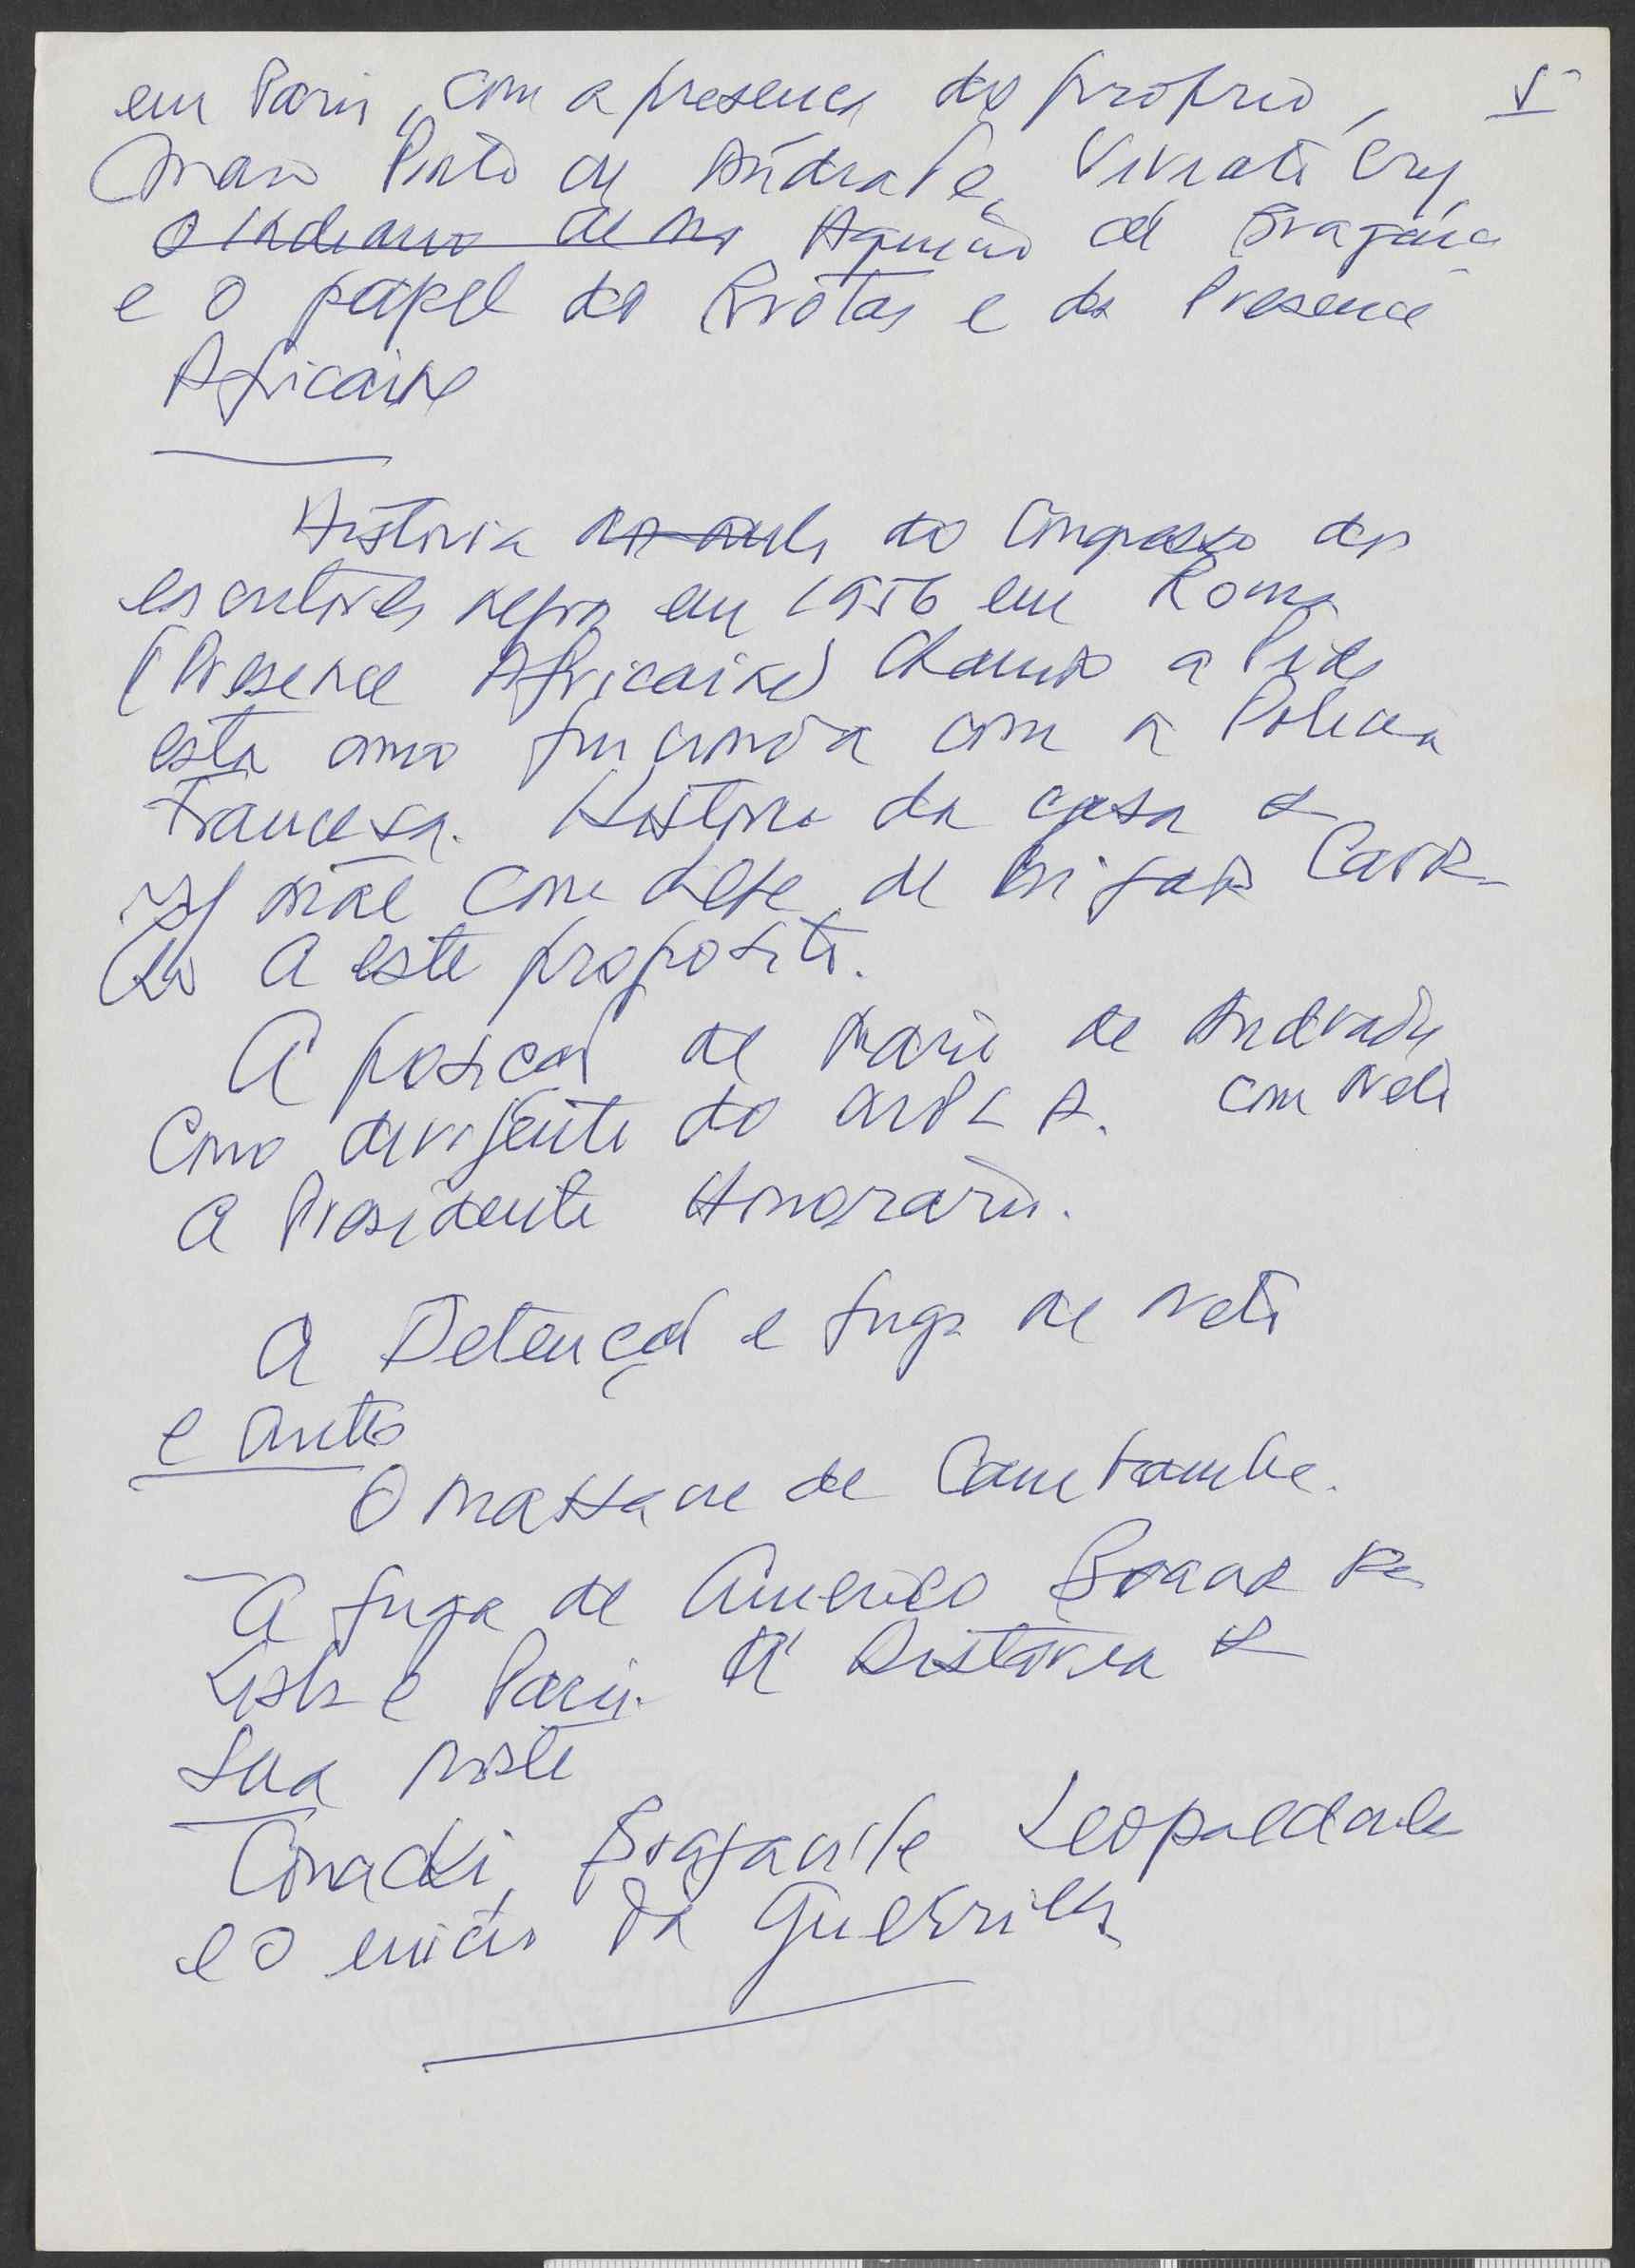 em Paris, com a presença do proprio, 5
Mario Pinto de Andrade, Viriato Cruz
o indiano de no Aquino de Bragança
e o papel do e da Presence
Africaine
História do Congresso dos
escritores negros em 1956 em Roma
(Presence Africaine) Chamo a Pide
esta como funciona com a Policia
Francesa. História da casa
mãe com chefe de
a este proposito.
A posição de Mario de Andrade
Como dirigente do MPLA. com Neto
a Presidente Honorário.
A Detenção e fuga de Neto
e antes
O massacre de Cambambe.
- A fuga de Americo Boavida
Lisboa e Paris. A história
sua morte
Conacki, Brazaville Leopoldville
e o inicio da Guerrilha